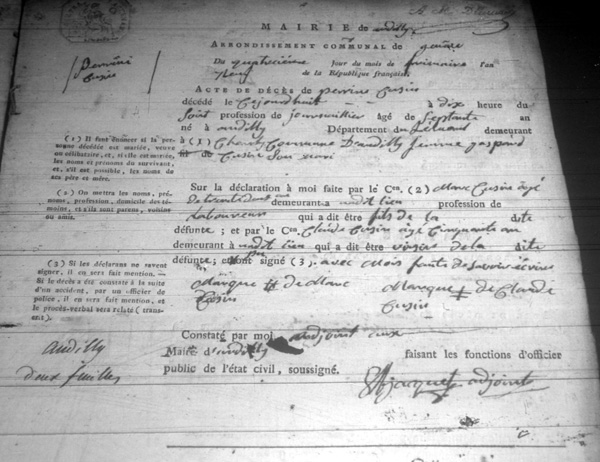 MAIRIE de andilly
ARRONDISSEMENT COMMUNAL de
Du Jour du mois de frimaire l'an
neuf de la République française.
perrine
Cusin
ACTE DE DÉCÈS de perrine Cusin
décédé le à dix heure du
soir profession de âgé de septante an
né à andilly Département du Leman demeurant
à (1) femme
de Cusin Son mari
(1) Il faut énoncer si la personne
décédée est mariée, veuve
ou célibataire, et, si elle est mariée,
les noms et prénoms du survivant,
et, s'il est possible, les noms de
ses père et mère.
Sur la déclaration à moi faite par le Cen. (2) Marc Cusin âgé
de trente demeurant a audit lieu profession de
Laboureur qui a dit être fils de la dite
défunte; et par le Cen. Claude Cusin âgé Cinquante an
demeurant à audit lieu qui a dit être voisin de la dite
défunte; et ont signé (3). avec Moi faute de Savoir écrire
(2) On mettra les noms, prénoms,
profession, domicile des témoins,
et s'ils sont parens, voisins
ou amis.
(3) Si les déclarans ne savent
signer, il en sera fait mention. —
Si le décès a été constaté à la suite
d'un accident, par un officier de
police, il en sera fait mention, et
le procès-verbal sera relaté (transcrit).
Marque de Marc Marque de Claude
Cusin Cusin
Constaté par moi adjoint aux
Maire d'andilly faisant les fonctions d'officier
public de l'état civil, soussigné.
Jacquet adjoint
andilly
deux feuilles